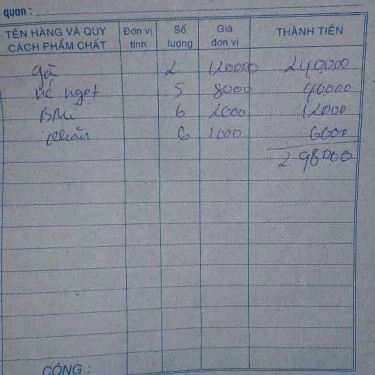 quan :
TÊN HÀNG VÀ QUY CÁCH PHẨM CHẤT Đơn vị tính Số lượng Giá đơn vị THÀNH TIỀN
gà 2 120000 240.000
nc ngọt 5 8000 40000
BMì 6 2000 12000
khăn 6 1000 6000
298000
CỘNG :